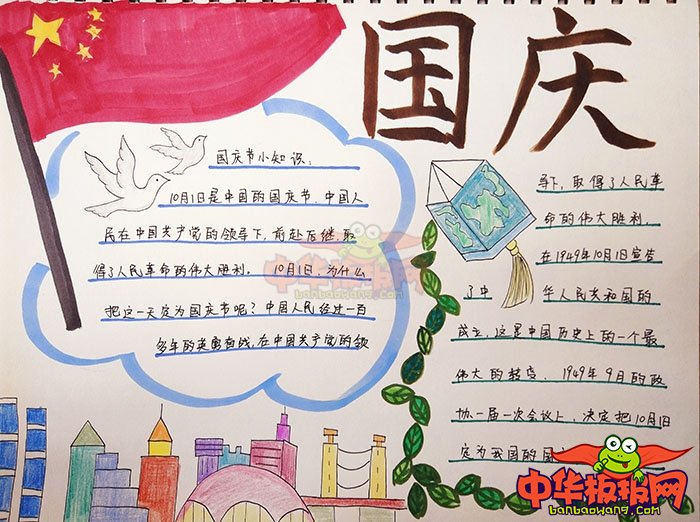 国庆
国庆节小知识:
10月1日是中国的国庆节.中国人
民在中国共产党的领导下,前赴后继,取
得了人民革命的伟大胜利. 10月1日,为什么
把这一天定为国庆节呢?中国人民经过一百
多年的英勇奋战,在中国共产党的领
导下,取得了人民革
命的伟大胜利.
在1949年10月1日宣告
了中 华人民共和国的
成立,这是中国历史上的一个最
伟大的转变. 1949年9月的政
协一届一次会议上,决定把10月1日
定为我国的国
中华板报网
banbaowang.com
中华板报网
banbaowang.com